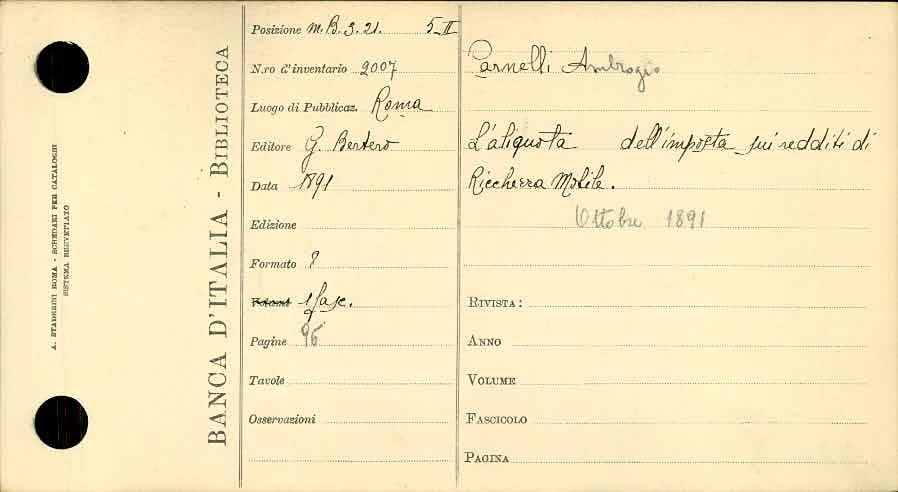 A. STADERINI ROMA - SCHEDARI PER CATALOGHI
SISTEMA BREVETTATO
BANCA D'ITALIA - BIBLIOTECA
Posizione m.B.3.21. 5-II
N.ro d'inventario 2007
Luogo di Pubblicaz. Roma
Editore G. Bertero
Data 1891
Edizione
Formato 8
Volumi 1 fasc.
Pagine 96
Tavole
Osservazioni
Parnelli Ambrogio
L'aliquota dell'imposta sui redditi di
Ricchezza Mobile.
Ottobre 1891
RIVISTA:
ANNO
VOLUME
FASCICOLO
PAGINA